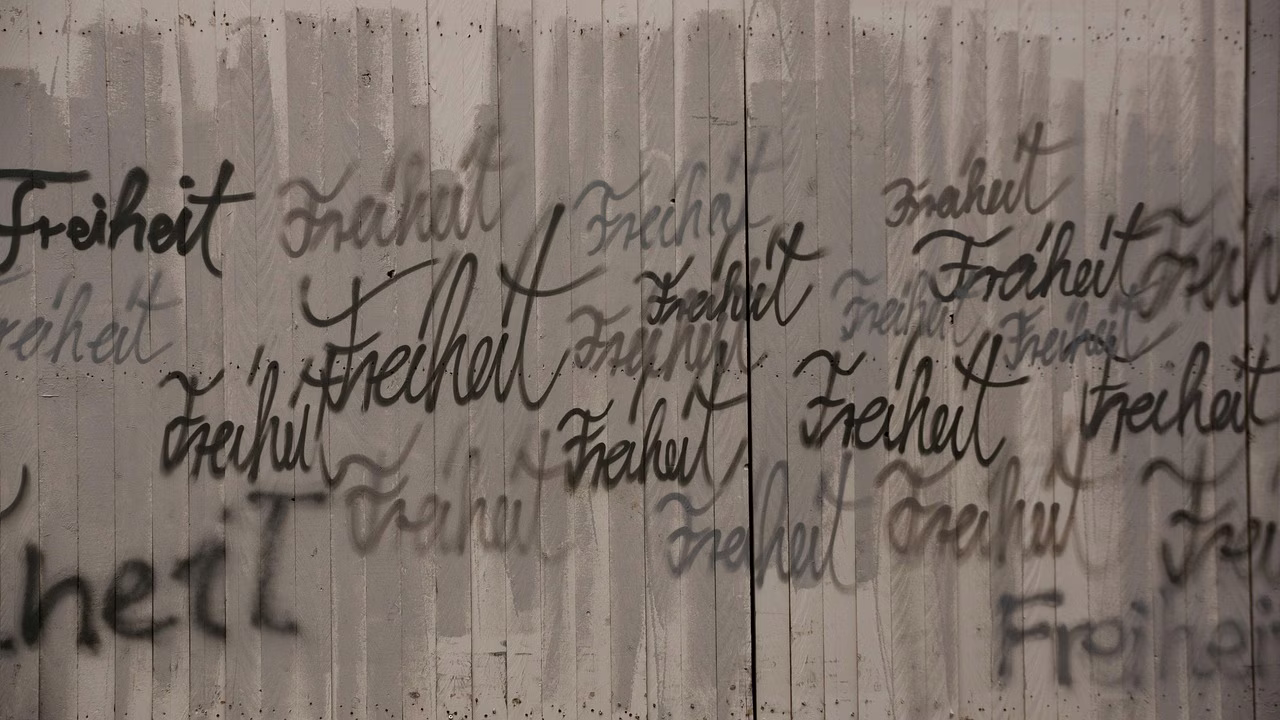 Freiheit
Freiheit
Freiheit
Freiheit
Freiheit
Freiheit
Freiheit
reiheit
Freiheit
Freiheit
Freiheit
Freiheit
Freih
Freiheit
Freiheit
Freiheit
Freiheit
Freiheit
Freiheit
Freiheit
Freiheit
Frei
heit
Freihei